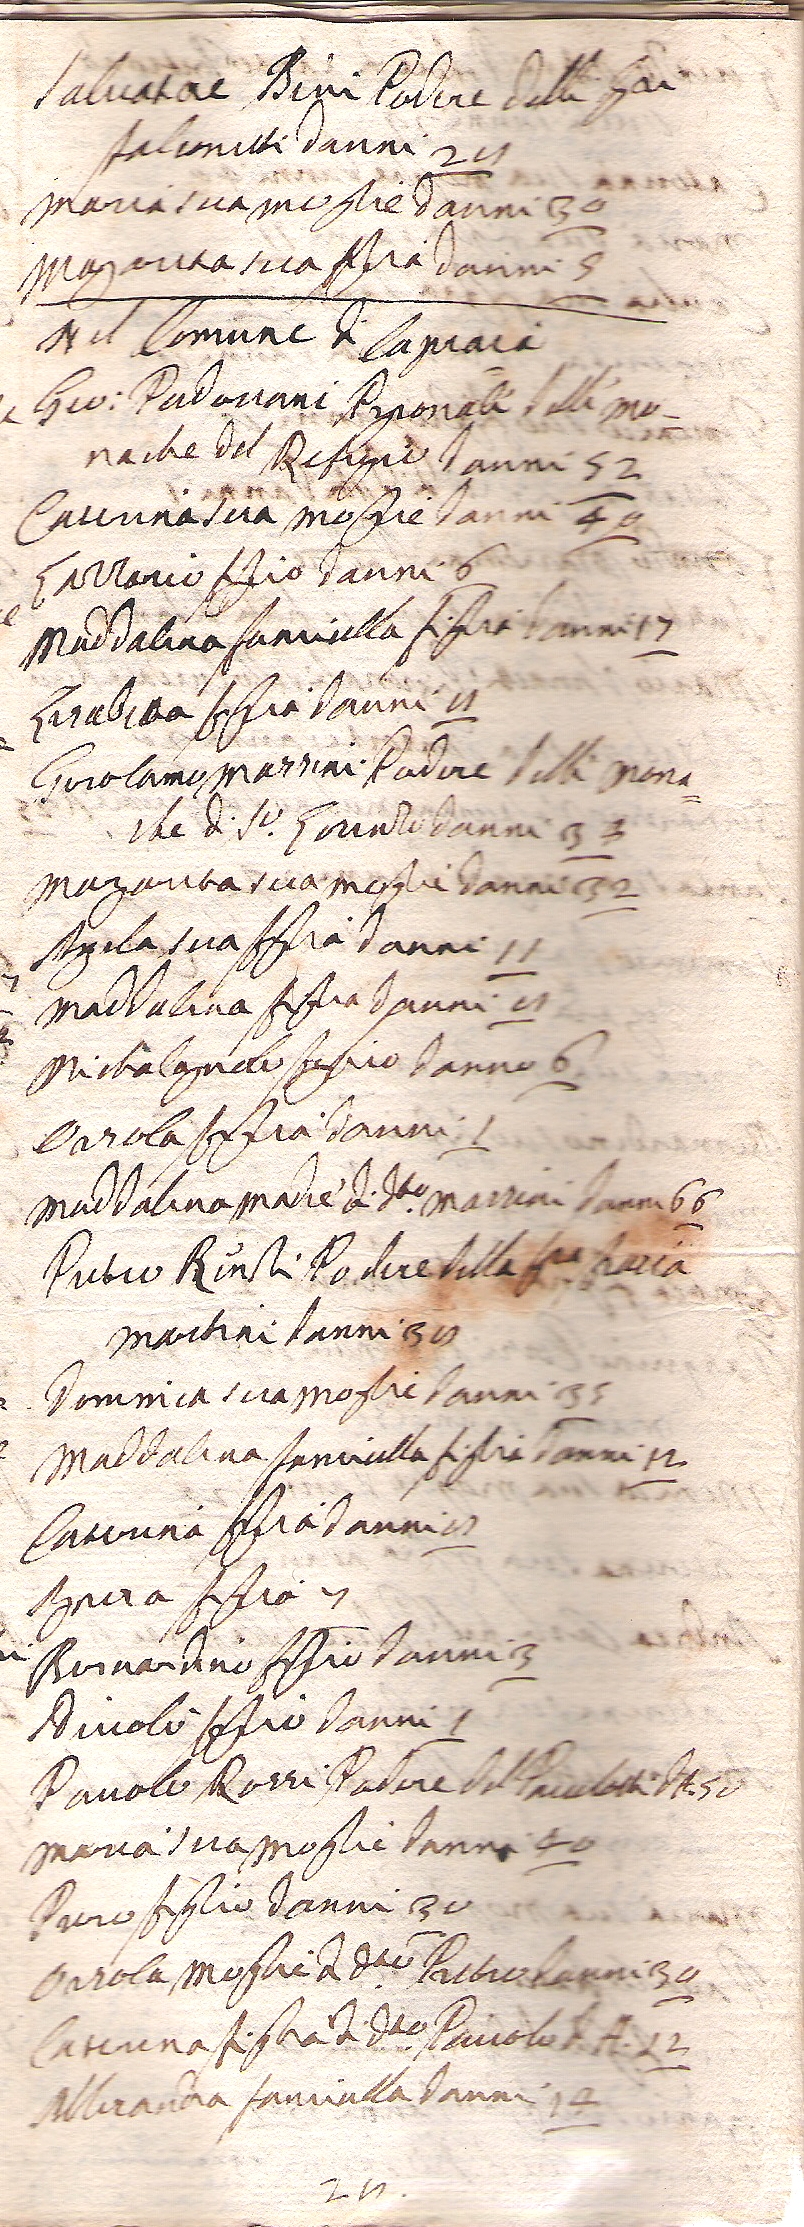 Salvatore Bini Podere delli
falconetti d'anni
Maria sua moglie d'anni 30
Margarita sua figlia d'anni 5
Nel Comune di Capraia
Gio: Padovani Pigionale delle mo-
nache del Refugio d'anni 52
Caterina sua moglie d'anni 40
Lazzario figlio d'anni 6
Maddalena fanciulla figlia d'anni 17
figlia d'anni
Girolamo Massini Podere delle Mona=
che di Sto. Lorenzo d'anni 33
Margarita sua moglie d'anni 32
Agela sua figlia d'anni 11
Maddalena figlia d'anni
Michelagnolo figlio d'anno 6
Orsola figlia d'anni 1
Maddalena madre di dto. Massini d'anni 66
Pietro Podere della
Martini d'anni
Domenica sua moglie d'anni 35
Maddalena fanciulla figlia d'anni 12
Caterina figlia d'anni
figlia
Bernardino figlio d'anni 3
Nicolò figlio d'anni 1
Pauolo Rossi Podere del d'A. 50
Maria sua moglie d'anni 40
Piero figlio d'anni 30
Orsola moglie di dto. Pietro d'anni 30
Caterina figlia di dto. Pauolo d'A. 22
fanciulla d'anni 14